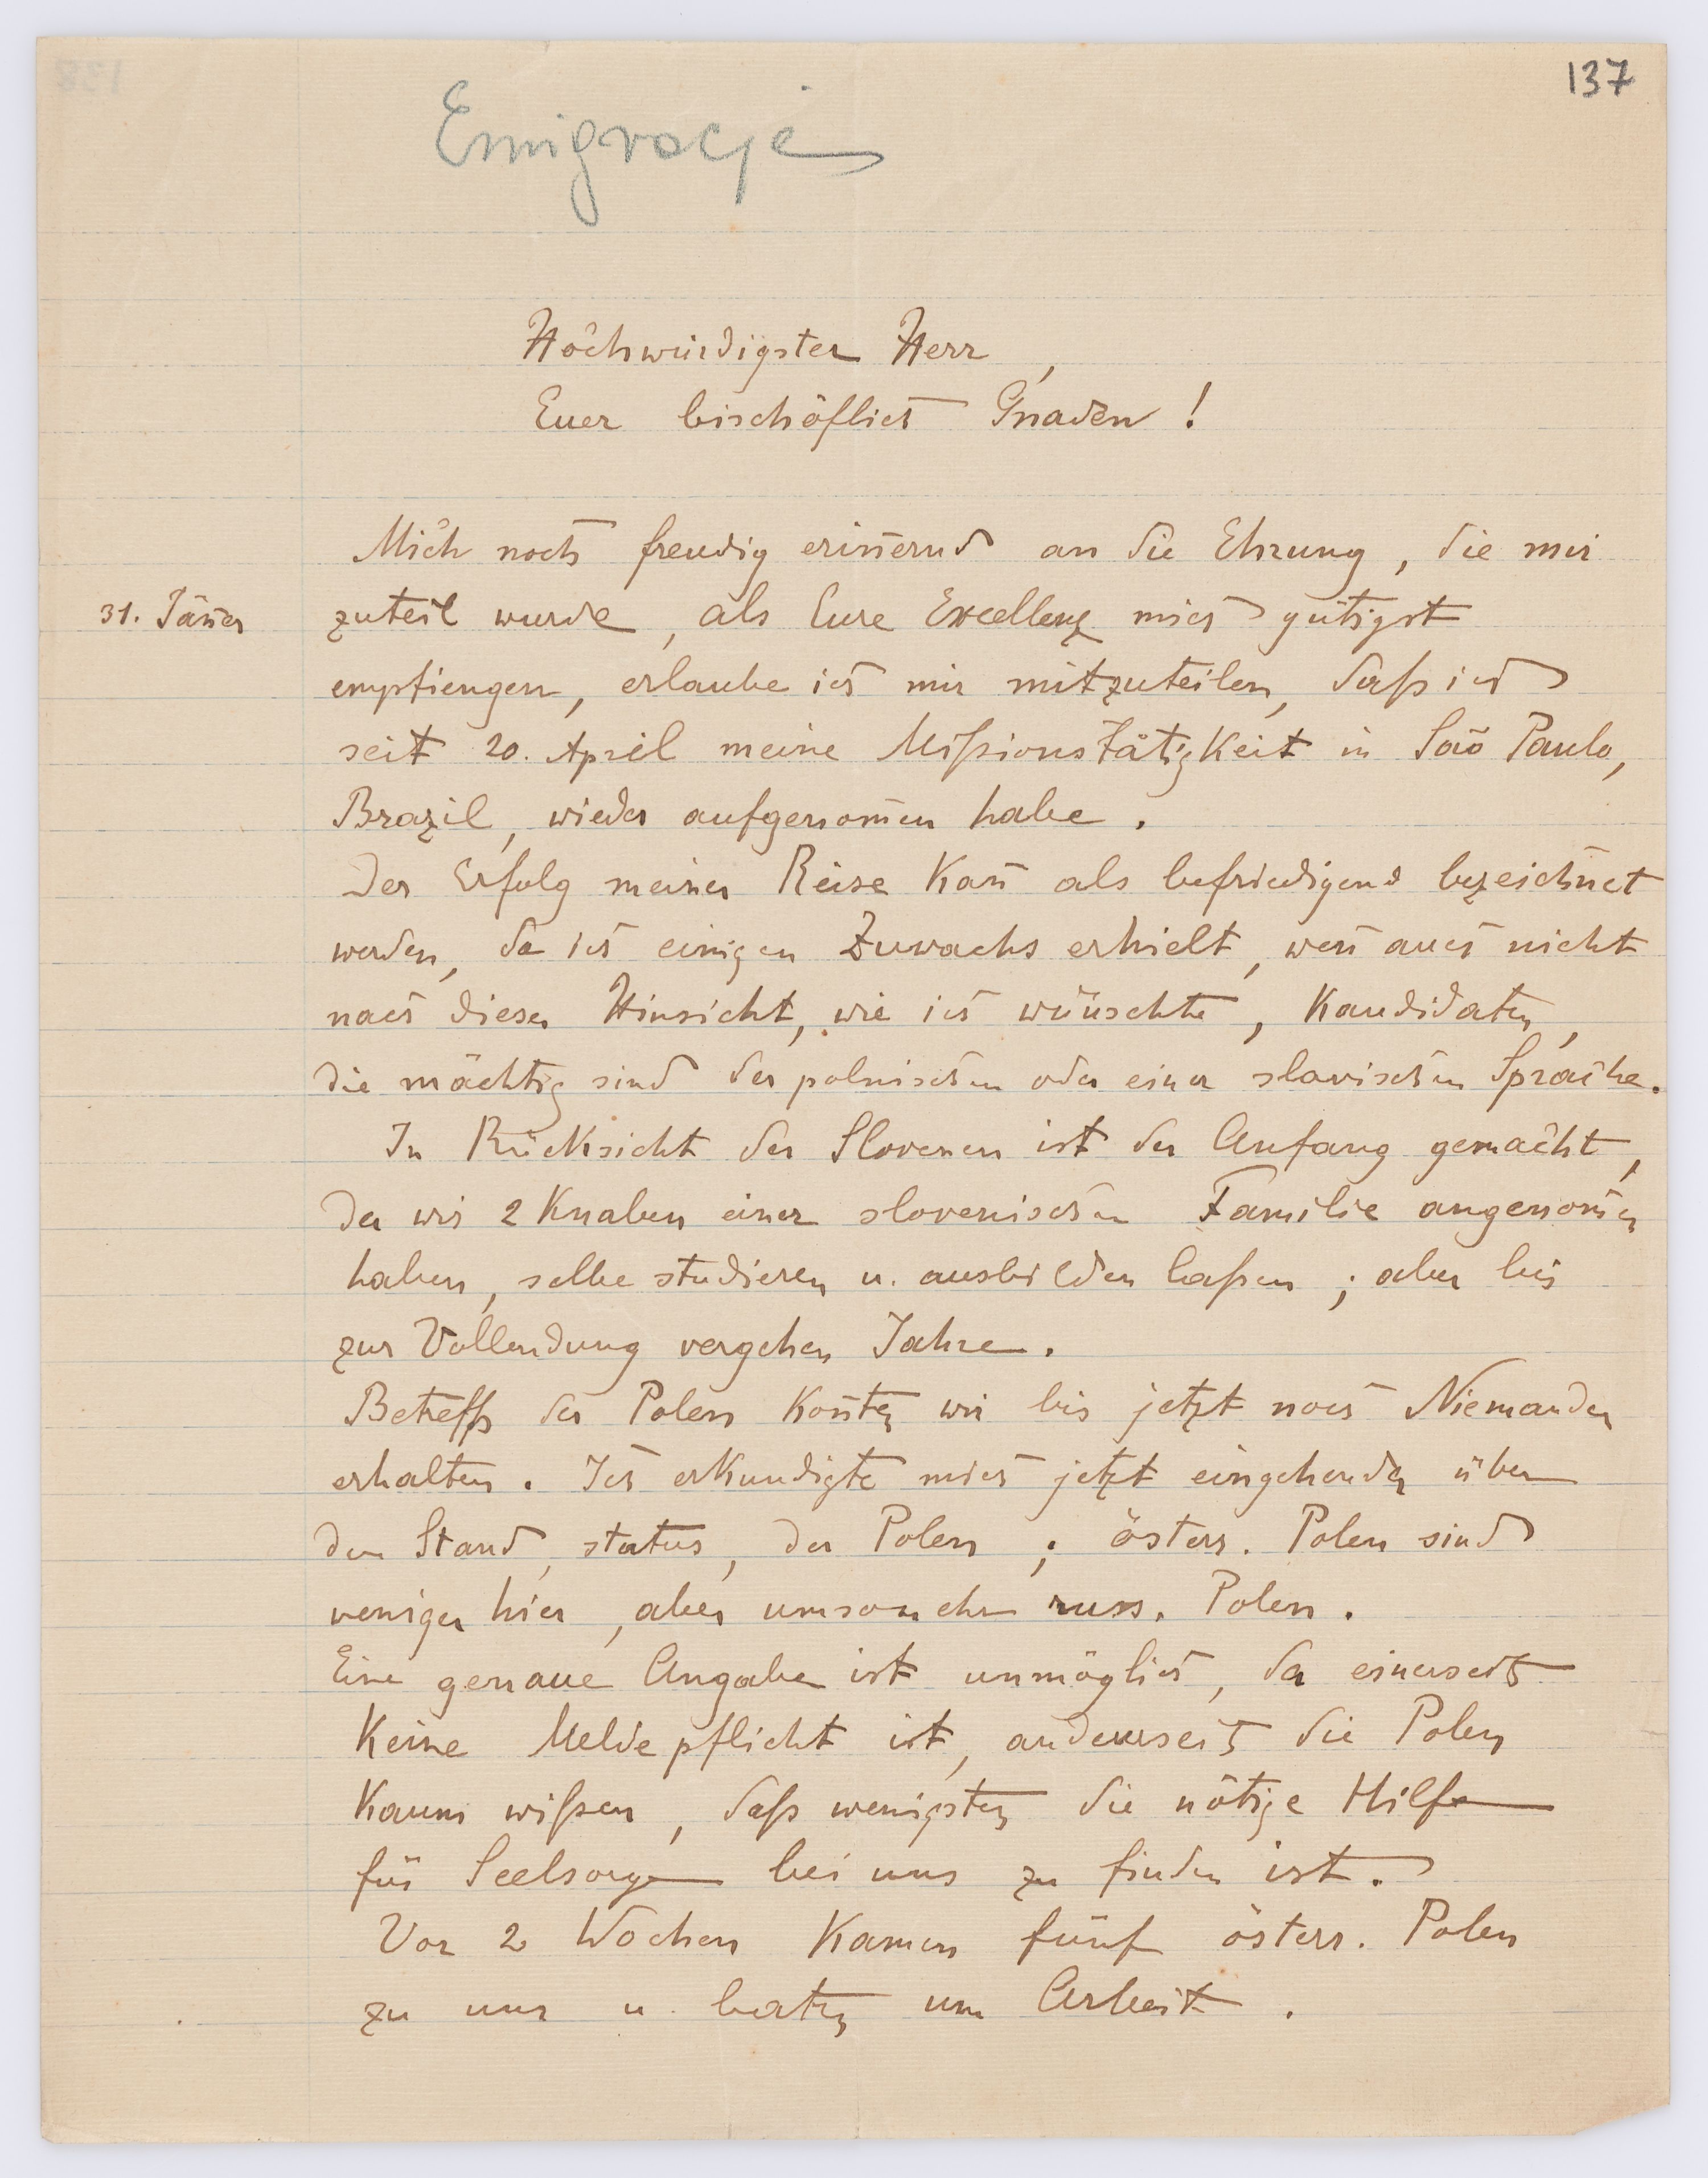 137
Emigracje
Hochwürdigster Herr,
Euer bischöflich Gnaden!
Mich noch freudig erin̄ernd an die Ehrung, die mir
31. Jän̄er
zuteil wurde, als Eure Excellenz mich gütigst
empfiengen, erlaube ich mir mitzuteilen, daß ich
seit 20. April meine Mißionstätigkeit in Saõ Paulo,
Brazil, wieder aufgenom̄en habe.
Der Erfolg meiner Reise kan̄ als befriedigend bezeichnet
werden, da ich einigen Zuwachs erhielt, wen̄ auch nicht
nach dieser Hinsicht, wie ich wünschte, Kandidaten,
die mächtig sind der polnischen oder einer slavischen Sprache.
In Rücksicht der Slovenen ist der Anfang gemacht,
da wir 2 Knaben einer slovenischen Familie angenom̄en
haben, selbe studieren u. ausbilden laßen; aber bis
zur Vollendung vergehen Jahre.
Betreffs der Polen kon̄ten wir bis jetzt noch Niemanden
erhalten. Ich erkundigte mich jetzt eingehender über
den Stand, status, der Polen; österr. Polen sind
weniger hier, aber umsomehr russ. Polen.
Eine genaue Angabe ist unmöglich, da einerseits
keine Meldepflicht ist, anderseits die Polen
kaum wißen, daß wenigstens die nötige Hilfe
für Seelsorge bei uns zu finden ist.
Vor 2 Wochen kamen fünf österr. Polen
zu uns u. baten um Arbeit.